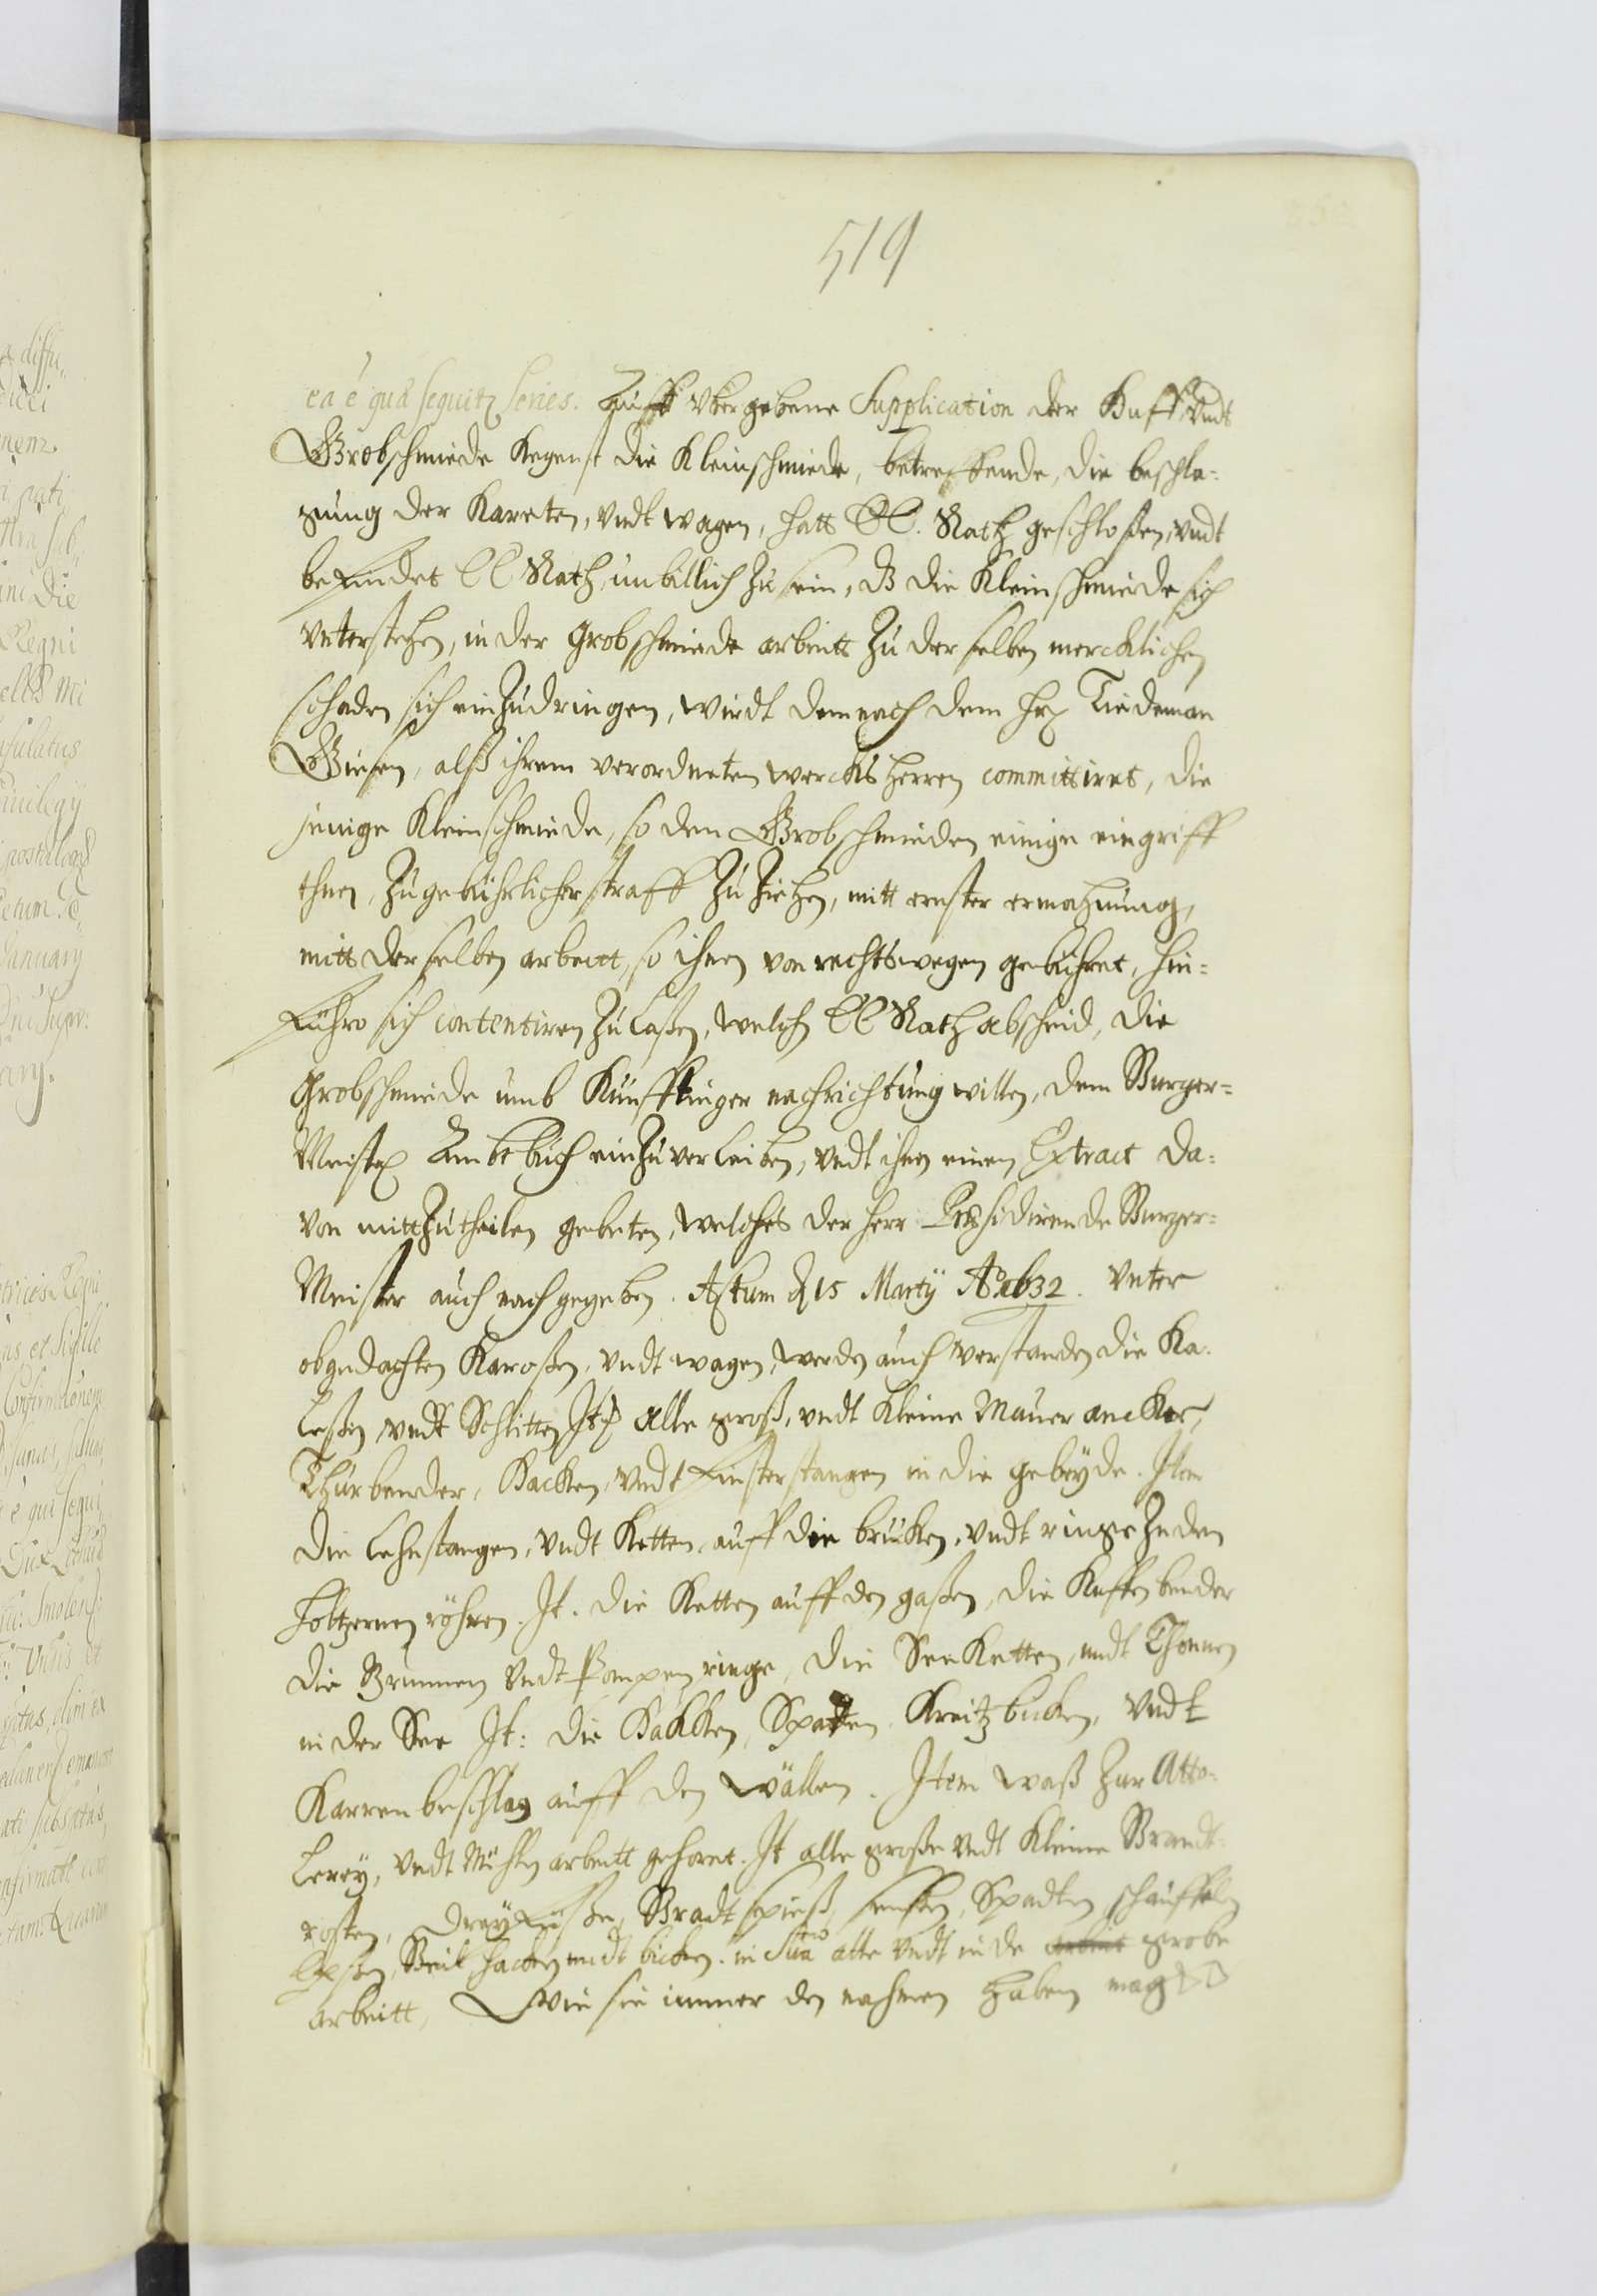 519
ea e qua sequitr series. Auff übergebene Supplication der Huff undt
Grobschmiede Kegenst die Kleinschmiede, betreffende, die beschla-
gung der Kareten, undt wagen, hatt EE. Rath geschloßen, undt
befindet EE Rath, unbillich zu sein, dz die Kleinschmiede sich
unterstehen, in der Grobschmiede arbeitt zu derselben mercklichen
schaden sich einzudringen, wirdt demnach dem hrn Tiedeman
Giesen, alß ihrem verordneten wercksherren committiret, die
jenige Kleinschmiede, so den Grobschmieden einige eingriff
thuen, zu gebührlicher straff zu ziehen, mitt ernster ermahnung,
mitt derselben arbeitt, so ihnen von rechtswegen gebühret, hin-
führo sich contentiren zu laßen, welch EE Rath abscheid, die
Grobschmiede umb künfftiger nachrichtung willen, dem Burger-
Meister Ambtbuch einzuverleiben, undt ihnen einen Extract da-
von mittzutheilen gebeten, welches der herr Præsidirende Burger-
Meister auch nachgegeben. Actum d 15 Martÿ Ao 1632. Unter
obgedachten Karoßen, undt wagen, werden auch verstanden die Ka-
leßen undt Schlitten, It. alle groß, undt kleine Mauer ancker,
Thür bender, Hacken, undt finsterstangen in die gebeyde. Item
die Lehnstangen, undt Ketten auff die brücken, undt ringe zu den
holtzernen röhren. It. die Ketten auff den gaßen, die Kuffen bender
die Brunnen undt Pompen ringe, die See Ketten, undt Thonnen
in der See It: die Hakken, Spaten Kreitz bicken, undt
Karren beschlag auff den wällen. Item waß zur Atto-
lerey, undt Mühlen arbeitt gehoret. It alle große undt kleine Brandt-
rosten, Dreyfüße, Bradt spieß, sensen, Spadten, schauffeln
Exsen, Beil hacken undt bicken. in Sūa alle undt inde arbeit grobe
arbeitt, wie sie immer den nahmen haben mag